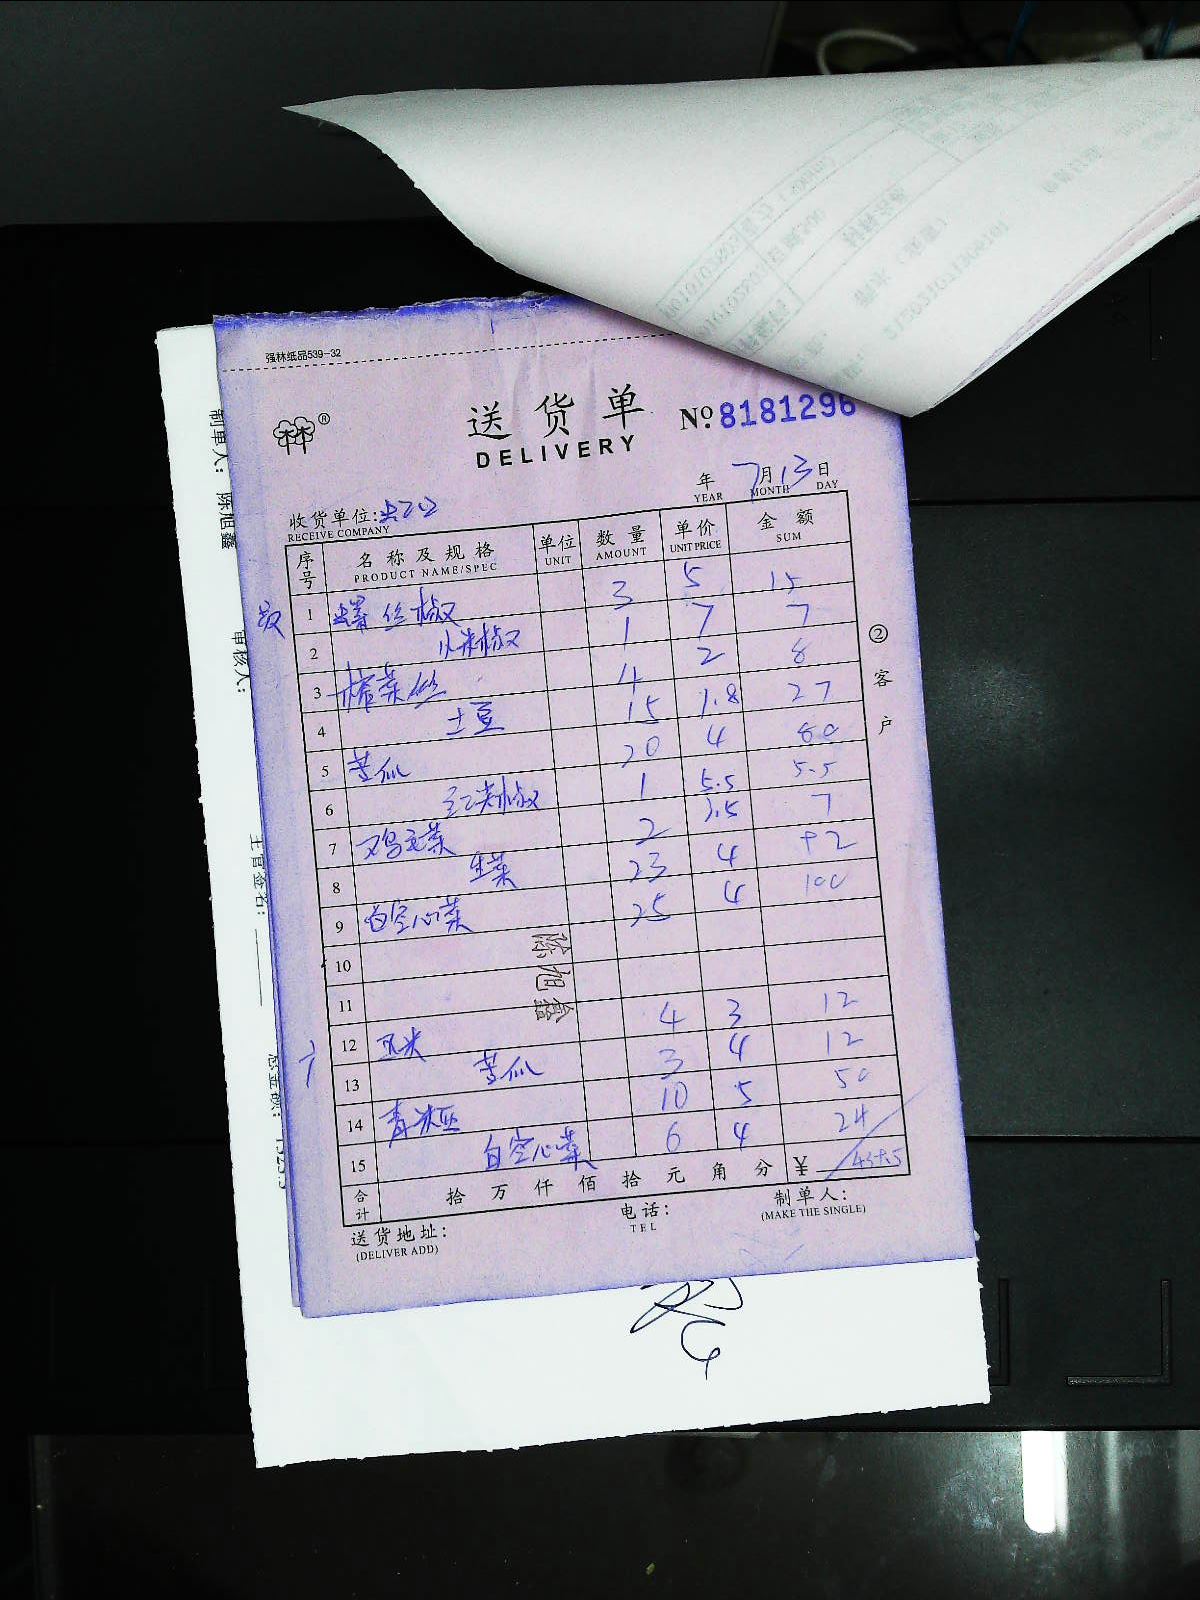 强林纸品539-32
林林®
送货单
DELIVERY
№ 8181296
年 7月13日
YEAR MONTH DAY
收货单位:
RECEIVE COMPANY
序号 名称及规格 单位 数量 单价 金额
PRODUCT NAME/SPEC UNIT AMOUNT UNIT PRICE SUM
1 螺丝椒 3 5 15
2 小米椒 1 7 7
3 榨菜丝 4 2 8
4 土豆 15 1.8 27
5 苦瓜 20 4 80
6 红尖椒 1 5.5 5.5
7 鸡毛菜 2 3.5 7
8 生菜 23 4 92
9 白空心菜 25 4 100
10
11
12 玉米 4 3 12
13 苦瓜 3 4 12
14 青 10 5 50
15 白空心菜 6 4 24
合计 拾 万 仟 佰 拾 元 角 分 ¥
陈旭鑫
送货地址:
(DELIVER ADD)
电话:
TEL
制单人:
(MAKE THE SINGLE)
②客户
制单人: 陈旭鑫
审核人:
主管签名:
总金额: